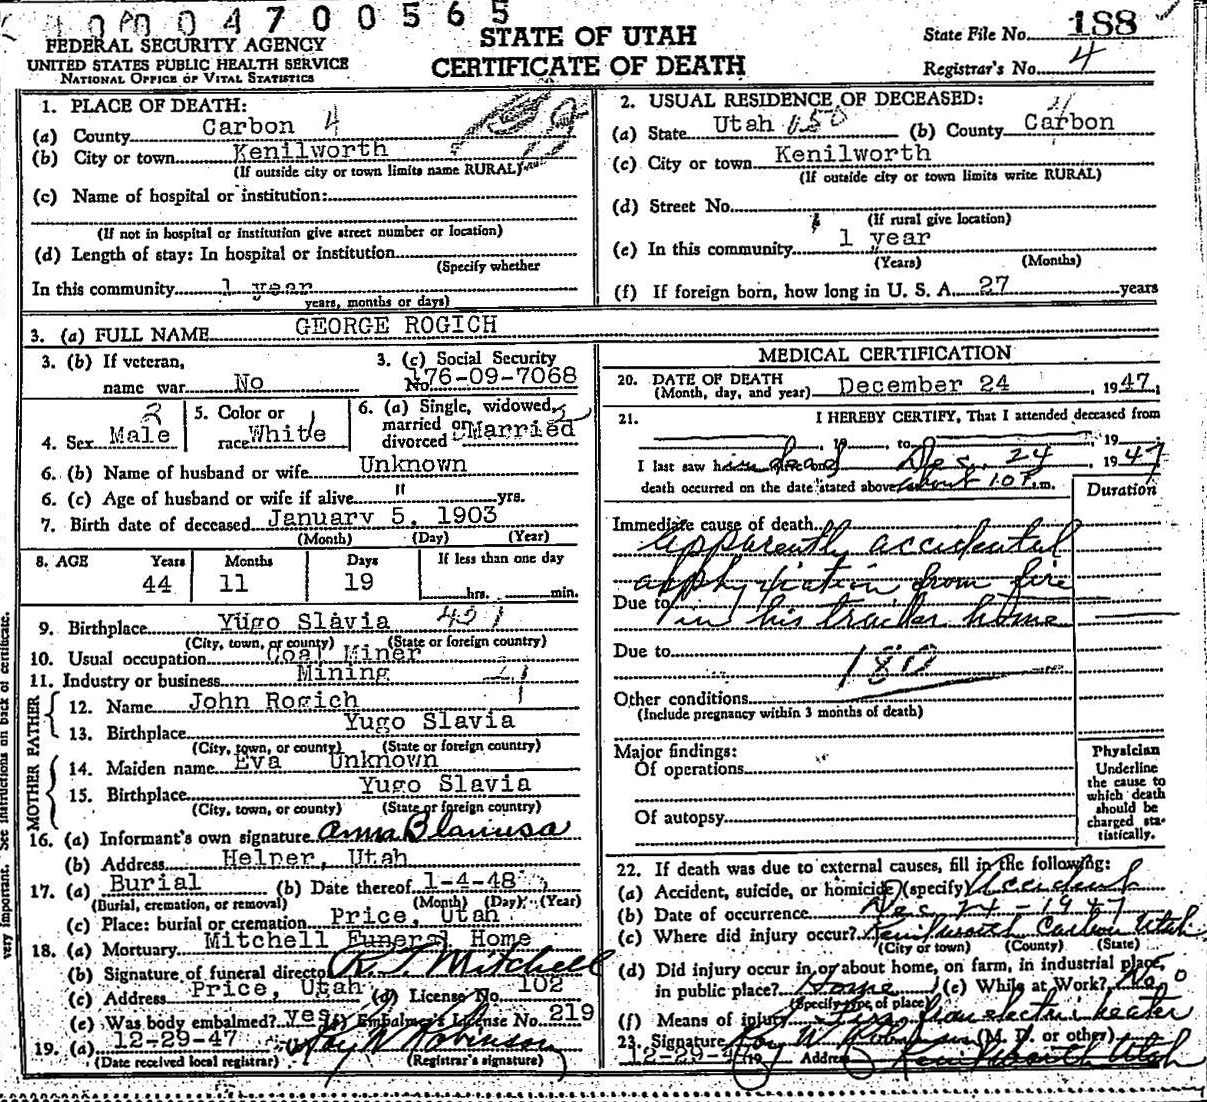 0004700565
FEDERAL SECURITY AGENCY
UNITED STATES PUBLIC HEALTH SERVICE
NATIONAL OFFICE OF VITAL STATISTICS
STATE OF UTAH
CERTIFICATE OF DEATH
State File No. 188
Registrar's No. 4
1. PLACE OF DEATH:
(a) County Carbon 4
(b) City or town Kenilworth
(If outside city or town limits name RURAL)
(c) Name of hospital or institution:
(If not in hospital or institution give street number or location)
(d) Length of stay: In hospital or institution
(Specify whether
In this community 1 year
years, months or days)
2. USUAL RESIDENCE OF DECEASED:
(a) State Utah 050 (b) County Carbon
(c) City or town Kenilworth
(If outside city or town limits write RURAL)
(d) Street No.
(If rural give location)
(e) In this community 1 year
(Years) (Months)
(f) If foreign born, how long in U. S. A. 27 years
3. (a) FULL NAME GEORGE ROGICH
3. (b) If veteran,
name war No
3. (c) Social Security
No. 176-09-7068
4. Sex Male
5. Color or
race White
6. (a) Single, widowed,
married or
divorced Married
6. (b) Name of husband or wife Unknown
6. (c) Age of husband or wife if alive " yrs.
7. Birth date of deceased January 5, 1903
(Month) (Day) (Year)
8. AGE Years Months Days If less than one day
44 11 19 hrs. min.
9. Birthplace Yugo Slavia
(City, town, or county) (State or foreign country)
10. Usual occupation Coal Miner
11. Industry or business Mining
FATHER
12. Name John Rogich
13. Birthplace Yugo Slavia
(City, town, or county) (State or foreign country)
MOTHER
14. Maiden name Eva Unknown
15. Birthplace Yugo Slavia
(City, town, or county) (State or foreign country)
16. (a) Informant's own signature Anna
(b) Address Helper, Utah
17. (a) Burial (b) Date thereof 1-4-48
(Burial, cremation, or removal) (Month) (Day) (Year)
(c) Place: burial or cremation Price, Utah
18. (a) Mortuary Mitchell Funeral Home
(b) Signature of funeral director R. T. Mitchell
(c) Address Price, Utah (d) License No. 102
(e) Was body embalmed? yes (f) Embalmer's License No. 219
19. (a) 12-29-47 Ray W Robinson
(Date received local registrar) (Registrar's signature)
MEDICAL CERTIFICATION
20. DATE OF DEATH
(Month, day, and year) December 24, 1947
21. I HEREBY CERTIFY, That I attended deceased from
, 19 , to , 19
I last saw him dead Dec. 24 1947
death occurred on the date stated above about 10 P.m.
Duration
Immediate cause of death
Apparently accidental
asphyxiation from fire
Due to in his trailer home
Due to
180
Other conditions
(Include pregnancy within 3 months of death)
Major findings:
Of operations
Of autopsy
Physician
Underline
the cause to
which death
should be
charged sta-
tistically.
22. If death was due to external causes, fill in the following:
(a) Accident, suicide, or homicide (specify) Accident
(b) Date of occurrence Dec 24 - 1947
(c) Where did injury occur? Kenilworth Carbon Utah
(City or town) (County) (State)
(d) Did injury occur in or about home, on farm, in industrial place,
in public place? Home (e) While at Work? No
(Specify type of place)
(f) Means of injury Fire from electric heater
23. Signature (M. D. or other)
12-29-47 Address Kenilworth Utah
very important. See instructions on back of certificate.